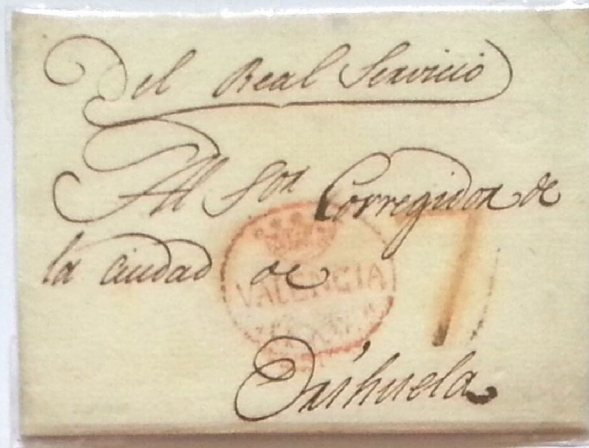 Del Real Servicio
Al Sor Corregidor de
la ciudad de
VALENCIA
7
Orihuela